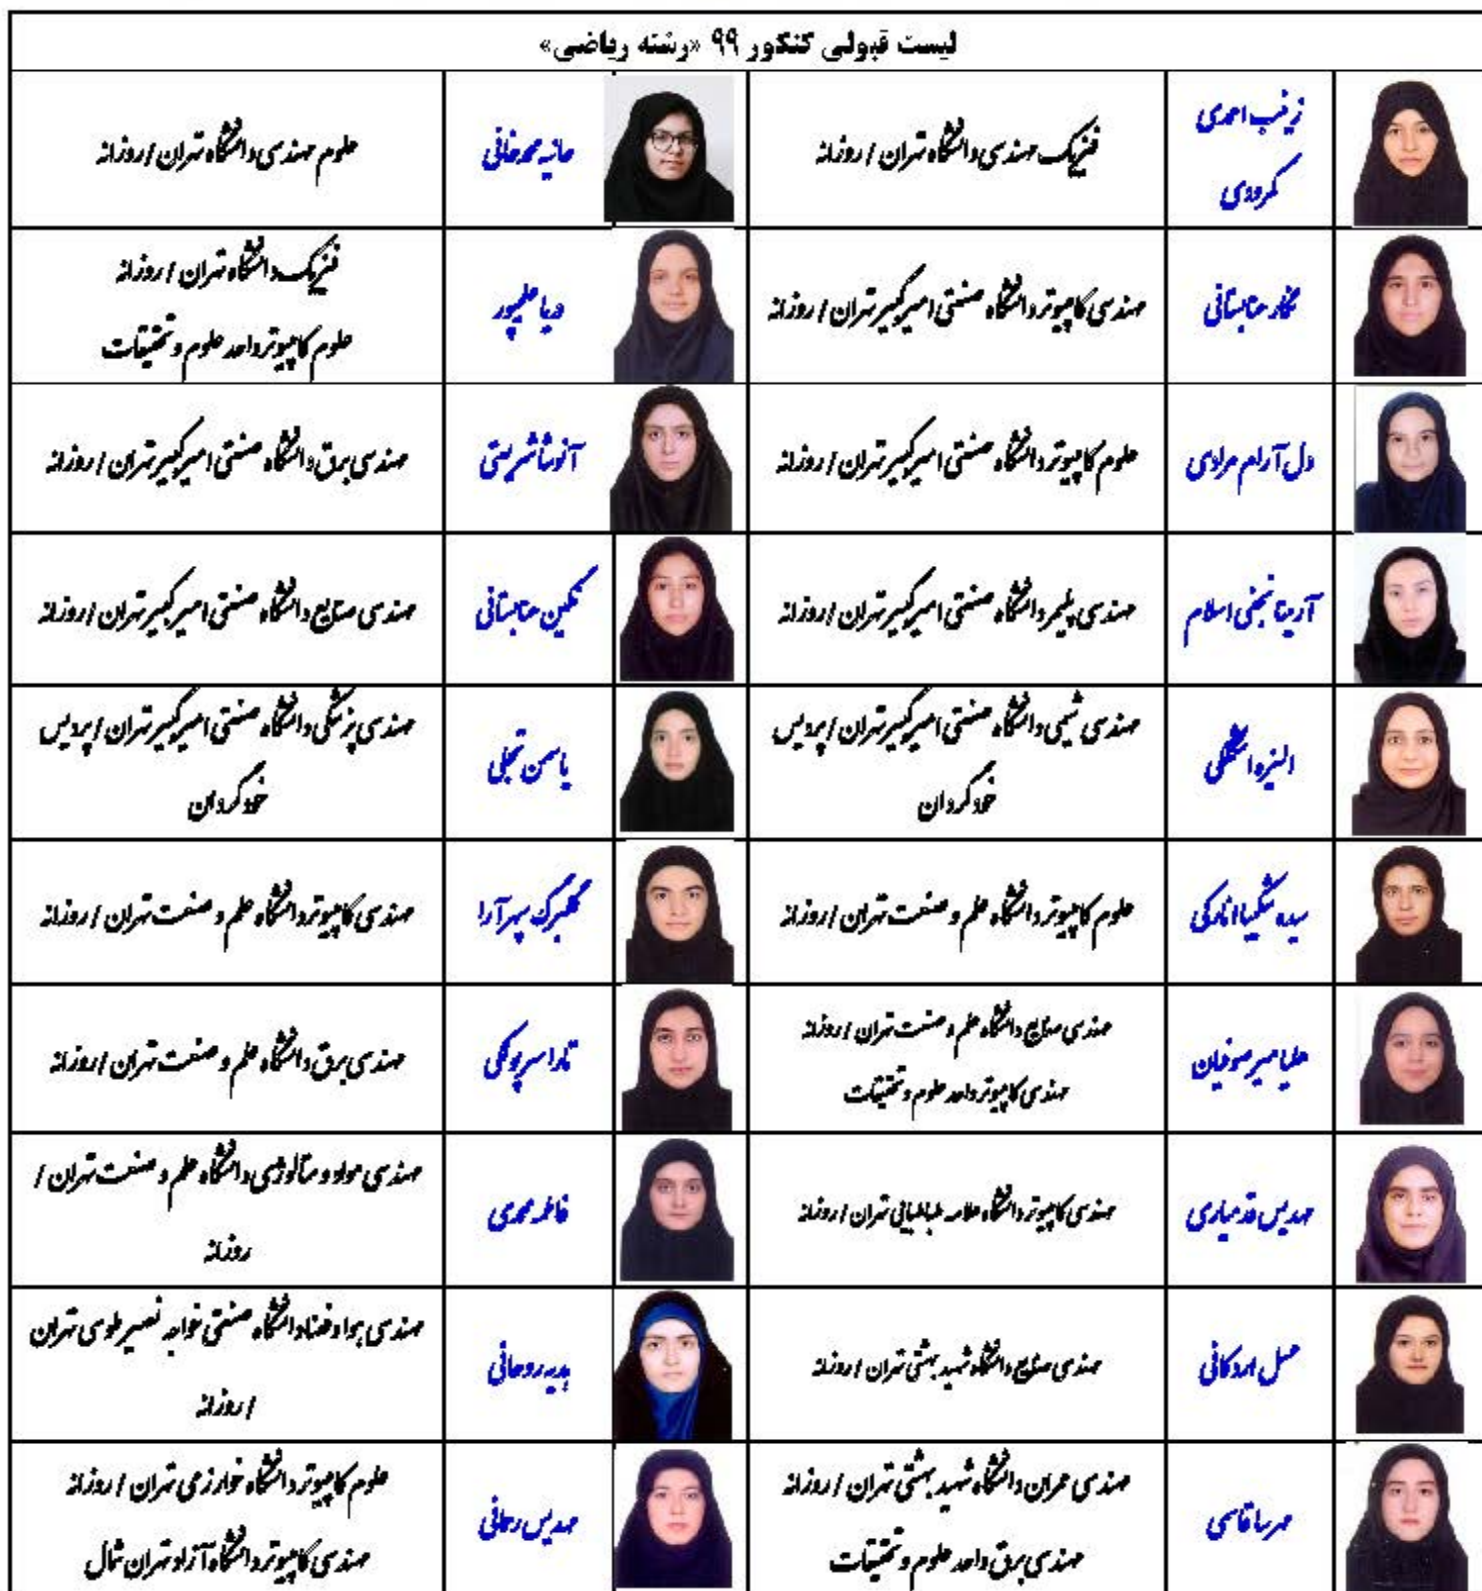 لیست قبولی کنکور ۹۹ «رشته ریاضی»
زینب احمدی
کمرودی
فیزیک مهندسی دانشگاه تهران / روزانه
حانیه محمدخانی
علوم مهندسی دانشگاه تهران / روزانه
نگار عنابستانی
مهندسی کامپیوتر دانشگاه صنعتی امیرکبیر تهران / روزانه
دریا علیپور
فیزیک دانشگاه تهران / روزانه
علوم کامپیوتر واحد علوم و تحقیقات
دل آرام مرادی
علوم کامپیوتر دانشگاه صنعتی امیرکبیر تهران / روزانه
آنوشا شریعتی
مهندسی برق دانشگاه صنعتی امیرکبیر تهران / روزانه
آرینا نجفی اسلام
مهندسی پلیمر دانشگاه صنعتی امیرکبیر تهران / روزانه
نگین عنابستانی
مهندسی صنایع دانشگاه صنعتی امیرکبیر تهران / روزانه
مهندسی شیمی دانشگاه صنعتی امیرکبیر تهران / پردیس
خودگردان
یاسمن تجلی
مهندسی پزشکی دانشگاه صنعتی امیرکبیر تهران / پردیس
خودگردان
سیده شکیبا انارکی
علوم کامپیوتر دانشگاه علم و صنعت تهران / روزانه
گلبرگ سپهرآرا
مهندسی کامپیوتر دانشگاه علم و صنعت تهران / روزانه
هلیا میرصوفیان
مهندسی صنایع دانشگاه علم و صنعت تهران / روزانه
مهندسی کامپیوتر واحد علوم و تحقیقات
تارا سرپولکی
مهندسی برق دانشگاه علم و صنعت تهران / روزانه
مهدیس قدمیاری
مهندسی کامپیوتر دانشگاه علامه طباطبایی تهران / روزانه
فاطمه محمدی
مهندسی مواد و متالوژی دانشگاه علم و صنعت تهران /
روزانه
عسل اردکانی
مهندسی صنایع دانشگاه شهید بهشتی تهران / روزانه
هدیه روحانی
مهندسی هوا و فضا دانشگاه صنعتی خواجه نصیر طوسی تهران
/ روزانه
مهرسا قاسمی
مهندسی عمران دانشگاه شهید بهشتی تهران / روزانه
مهندسی برق واحد علوم و تحقیقات
مهدیس رحمانی
علوم کامپیوتر دانشگاه خوارزمی تهران / روزانه
مهندسی کامپیوتر دانشگاه آزاد تهران شمال